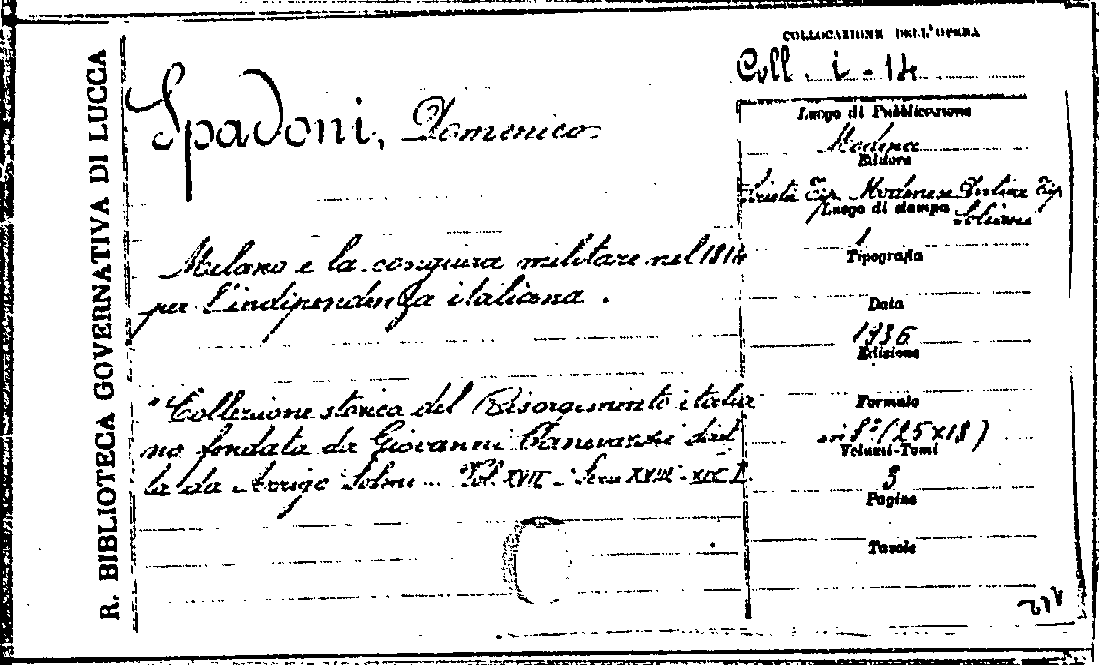 R. BIBLIOTECA GOVERNATIVA DI LUCCA
Spadoni, Domenico
Milano e la congiura militare nel 1814
per l'indipendenza italiana.
"Collezione storica del Risorgimento italia
no fondata da Giovanni Canevazzi diret
ta da Arrigo Solmi Vol. XVII - Serie XVIII - XIX I.
COLLOCAZIONE DELL'OPERA
Coll. i - 14
Luogo di Pubblicazione
Modena
Editore
Società Tip. Modenese Tip
Luogo di stampa
Tipografia
Data
1936
Edizione
Formato
in 8° (25x18)
Volumi-Tomi
3
Pagine
Tavole